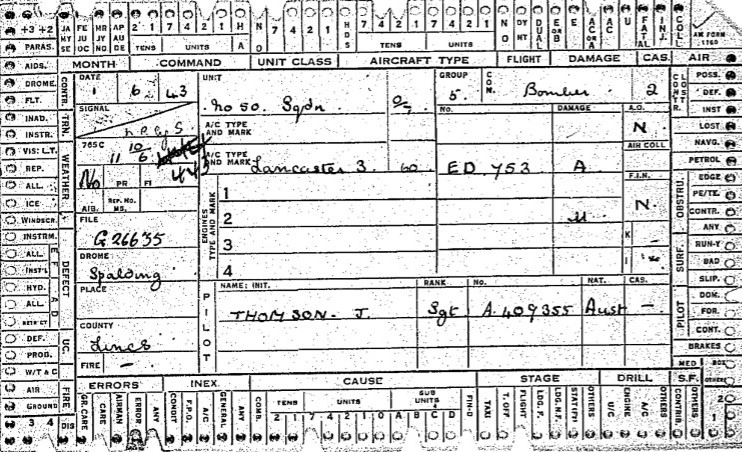 +3 +2 JA FE MR AP 2 1 7 4 2 1 H NO 7 4 2 1 HDS 7 4 2 1 7 4 2 1 NO DY NT DUAL E OR B E AC OR A AC U FATAL INJ. COLL AM FORM 1180
PARAS. MY SE JU OC JY NO AU DE TENS UNITS A TENS UNITS
AIDS. MONTH COMMAND UNIT CLASS AIRCRAFT TYPE FLIGHT DAMAGE CAS. AIR
DROME. CONTR. DATE UNIT GROUP COM. CONSTR. POSS.
FLT. 1 6 43 No 50. Sqdn. 5. Bomber 2 DEF.
INAD. TRN. SIGNAL A/C TYPE AND MARK NO. DAMAGE A.O. INST
INSTR. N LOST
VIS: L.T. WEATHER 765C 10/6 11 6 AIR COLL NAVG.
REP. 443 A/C TYPE AND MARK Lancaster 3. 60 ED 753 A PETROL
ALL. No PR FI F.I.N. OBSTRU. EDGE
ICE AIB. REP. NO. MS. ENGINES TYPE AND MARK 1 N. PE/TE.
WINDSCR. FILE 2 CONTR.
INSTRM. DEFECT G 26635 3 K ANY
ALL. DROME 4 I SURF. RUN-Y
INST'L Spalding BAD
HYD. PLACE PILOT NAME: INIT. RANK NO. NAT. CAS. SLIP.
ALL. THOMSON. J. Sgt A.409355 Aust — PILOT DOM.
RETR'CT COUNTY FOR.
DEF. UC. Lincs CONT.
PROG. FIRE — BRAKES
W/T & C MED
AIR FIRE ERRORS INEX. CAUSE STAGE DRILL S.F. OTHERS
GROUND GR.CARE CARE AIRMAN ERROR ANY CONDIT F.P.O. A/C GENERAL ANY COMB. TENS UNITS SUB UNITS FIG-D TAXI T. OFF FLIGHT LDG. F. LDG.N.F. STAT(FY) OTHERS U/C ENGINE A/C OTHERS CONTRIB. OTHERS 2
3 4 DIS 2 1 7 4 2 1 0 A B C D 1